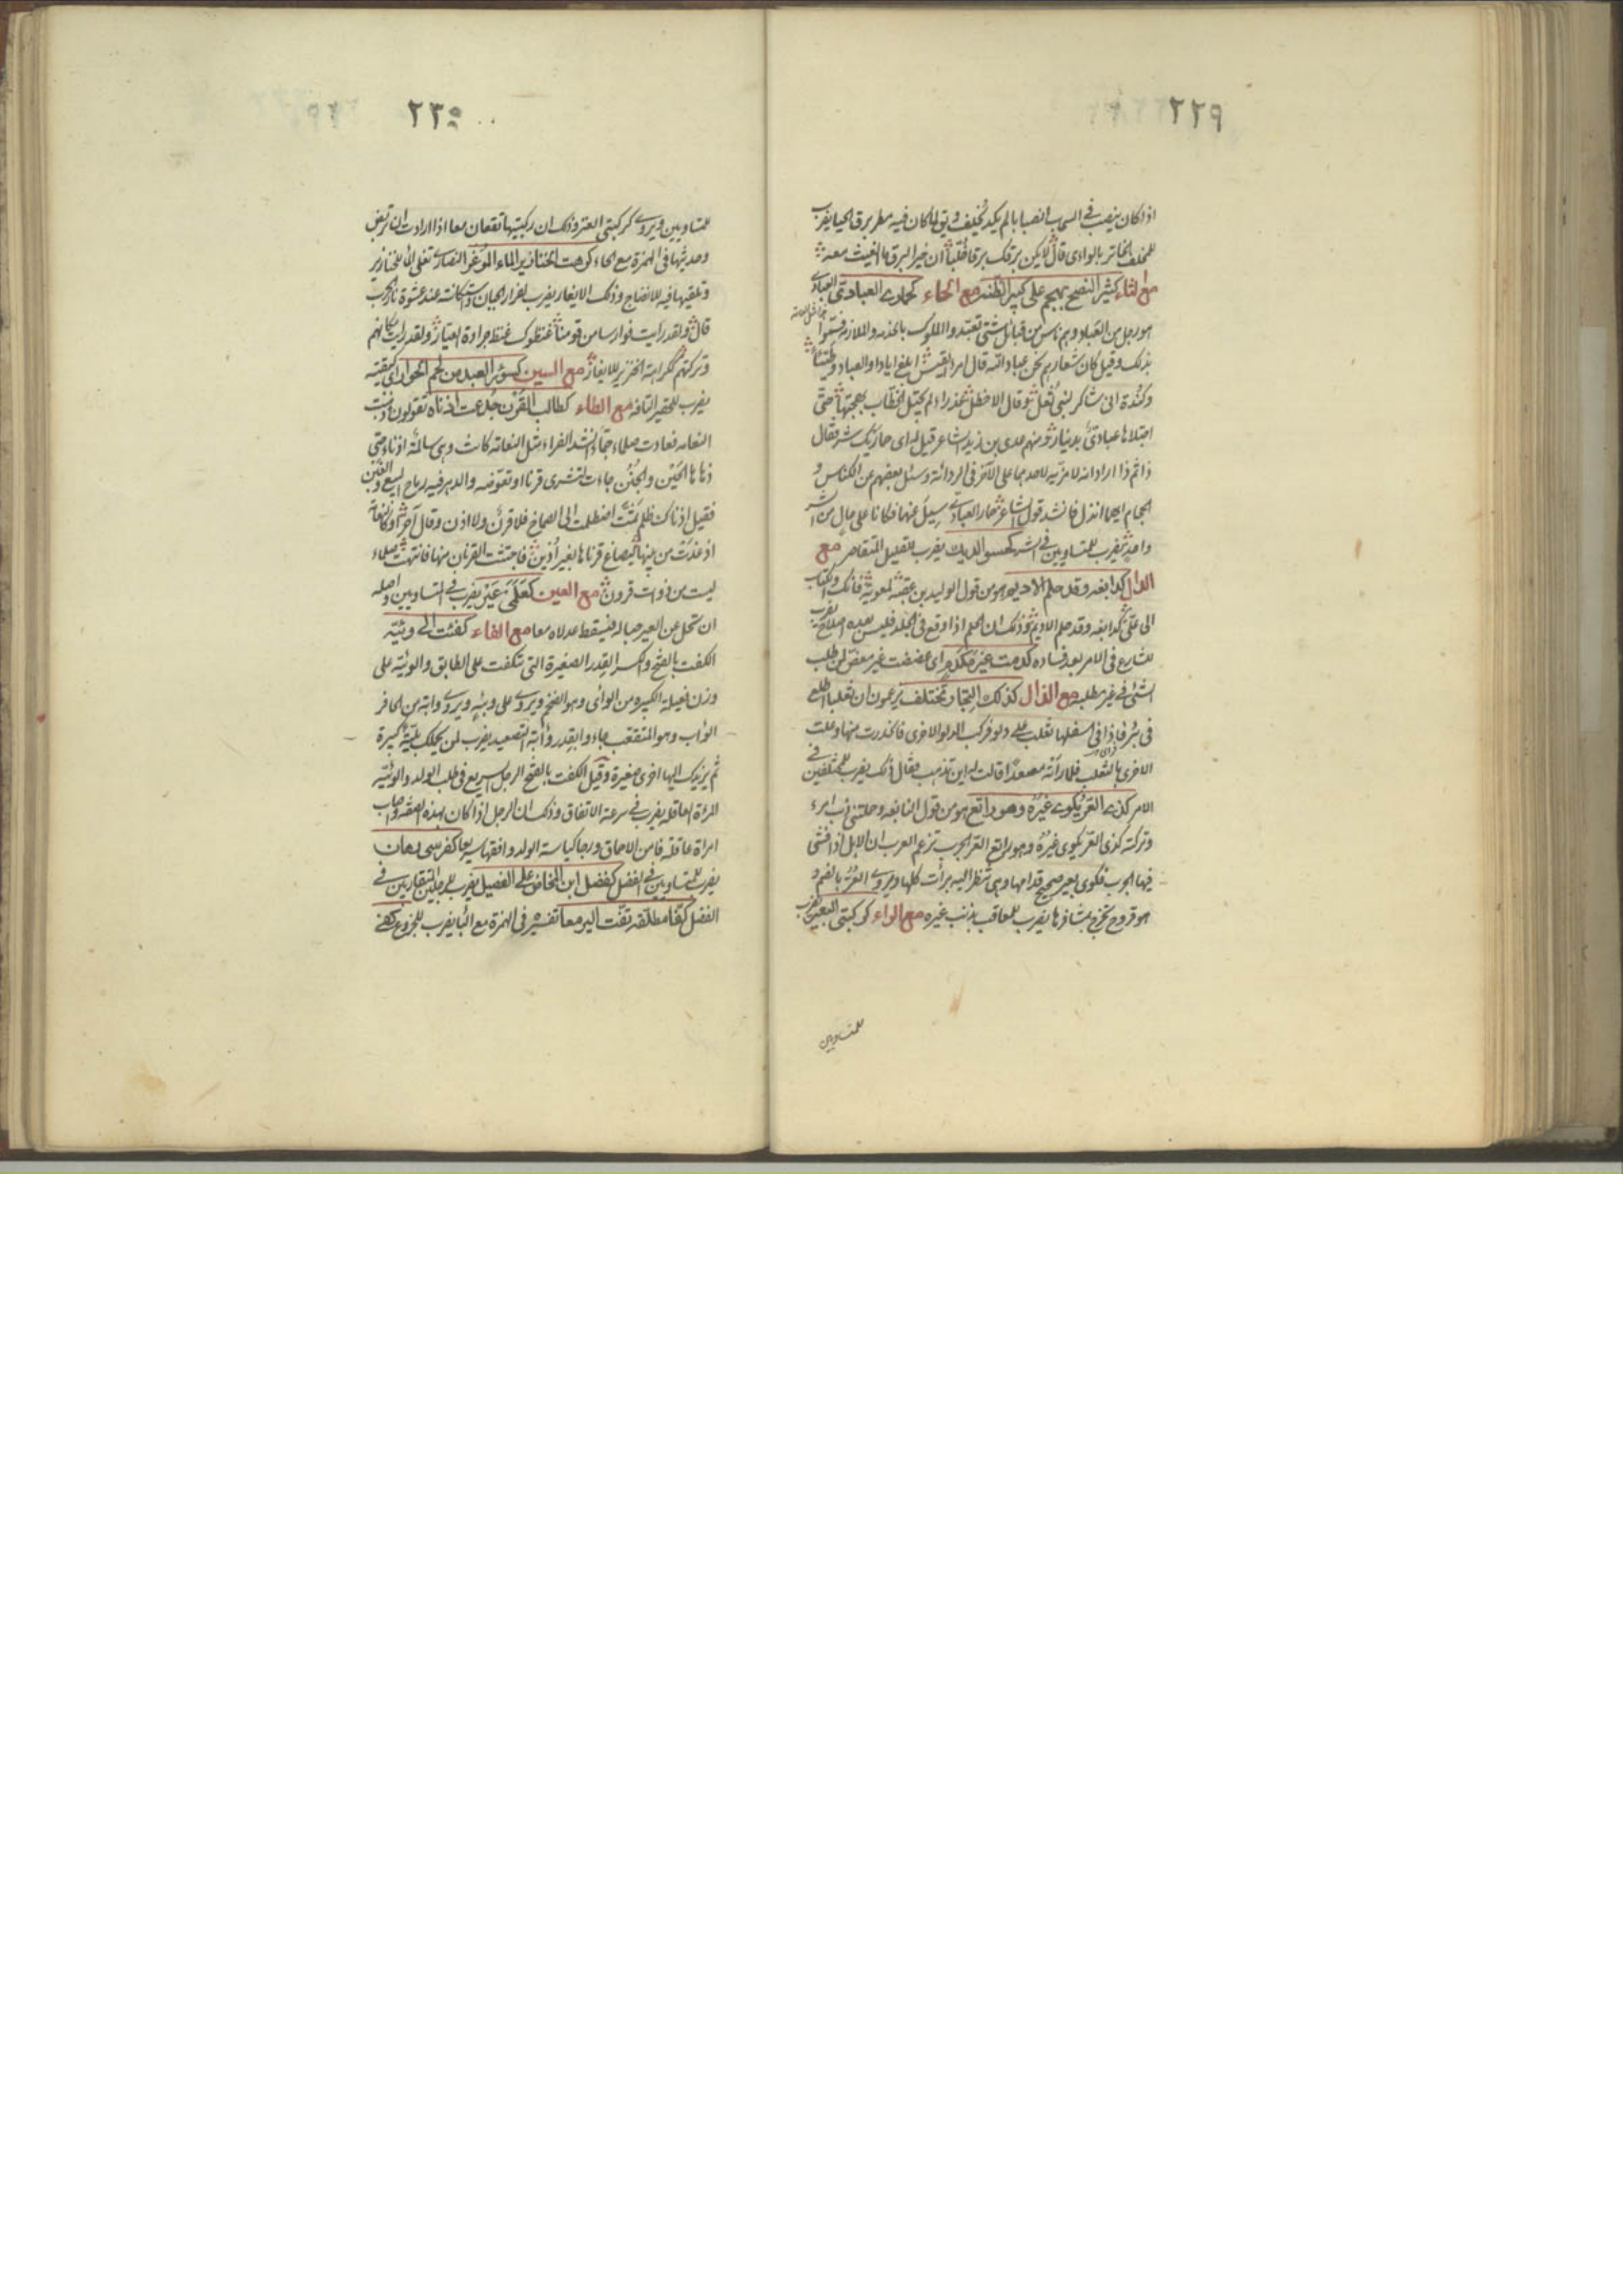 ٢٢٩
اذا كان ينصب فى السحاب انصبابا لم يكد يخلف ويقال كان فيه مطر برق الحيا يضرب
بالوادى قال لا يكن برقك برقا خلبا ان خير البرق ما الغيث معه
مع الثاء كثير النصح يهجم على كبير الظنة مع الحاء كحمارى العبادى العبادى
هو رجل من العباد وهم ناس من قبائل شتى تعبدوا الملوك فسموا
بذلك وقيل كان شعارهم نحن عباد الله قال امرؤ القيس ابلغ ايادا والعباد وطيئا
وكندة انى شاكر لبنى ثعل وقال الاخطل عذراء لم يجتل الخطاب بهجتها حتى
اجتلاها عبادى بدينار ومنهم عدى بن زيد الشاعر قيل له اى حماريك شر فقال
ذا ثم ذا اراد انه لا مزية لاحدهما على الآخر فى الردائة وسئل بعضهم عن الكناس و
الحجام ايهما انذل فانشد قول الشاعر حمار العبادى سيل عنهما فكانا على حال من الشر
واحد يضرب للمتساويين فى الشر كحسو الديك يضرب للقليل المتقاصر مع
الدال كدابغة وقد حلم الاديم هو من قول الوليد بن عقبة لمعوية فانك والكتاب
الى على كدابغة وقد حلم الاديم وذلك ان الحلم اذا وقع فى الجلد فليس بعده اصلاح يضرب
للشارع فى الامر بعد فساده كدمت غير مكدم اى عضضت غير معض لمن طلب
الشئ فى غير مطلبه مع الذال كذلك النجار تختلف يزعمون ان ثعلبا اطلع
فى بئر فاذا فى اسفلها ثعلب على دلو فركب الدلو الاخرى فانحدرت بها وعلت
الاخرى بالثعلب فلما رآه مصعدا قالت له اين تذهب فقال ذلك يضرب للمختلفين فى
الامر كذى العر يكوى غيره وهو راتع هو من قول النابغة وحملتنى ذنب امرء
وتركته كذى العر يكوى غيره وهو راتع العر الجرب تزعم العرب ان الابل اذا فشى
فيها الجرب فكوى بعير صحيح قدامها وهى تنظر اليه برأت كلها ويروى العر بالضم و
هو قروح تخرج بمشافرها يضرب للمعاقب بذنب غيره مع الراء كركبتى البعير يضرب
للمتساويين
٢٣٠
للمتساويين ويروى كركبتى العنز وذلك ان ركبتيها تقعان معا اذا ارادت ان تربض
وحديثها فى الهمزة مع الحاء كرهت الخنازير الماء الموغر النصارى تغلى الماء للخنازير
وتلقيها فيه للانضاج وذلك الايغار يضرب لفرار الجبان واستكانته عند
قال ولقد رايت فوارسا من قومنا غنظوك غنظ جرادة العيار ولقد رايت مكانهم
وتركتهم ككراهة الخنزير للايغار مع السين كسؤر العبد من لحم الحوار اى كبقيته
يضرب للحقير التافه مع الطاء كطالب القرن جدعت اذناه تقولون ذهبت
النعامة فعادت صلماء جماء انشد الفراء مثل النعامة كانت وهى سالمة اذناء حتى
زهاها الحين والجنن جاءت لتشرى قرنا او تعوضه والدهر فيه رباح البيع والغبن
فقيل اذناك ظلم ثمت اضطلمت الى الصماخ فلا قرن ولا اذن وقال آخر او كالنعامة
اذ غدت من بيتها ليصاغ قرناها بغير اذين فاجتثت القرنان منها فانتهت صلماء
ليست من ذوات قرون مع العين كعكمى عير يضرب فى المتساويين واصله
ان تحل عن العير حباله فيسقط عدلاه معا مع الفاء كفت الى وئية
الكفت بالفتح والكسر القدر الصغيرة التى تكفت على الطابق والوئية على
وزن فعيلة الكبيرة من الوأى وهو الضخم ويروى على وئية ويروى وابة من الحافر
الوأب وهو المتقعب جاءوا بقدر وأبة التصعيد يضرب لمن يحملك بلية كبيرة
ثم يزيدك اليها اخرى صغيرة وقيل الكفت بالفتح الرجل السريع فى طلب الولد والوئية
المرأة العاقلة يضرب فى سرعة الاتفاق وذلك ان الرجل اذا كان بهذه الصفة واصاب
امرأة عاقلة فامن الاحماق ورجا كياسة الولد وافقها سريعا كفرسى رهان
يضرب للمتساويين فى الفضل كفضل ابن المخاض على الفصيل يضرب للرجلين المتقاربين فى
الفضل كفا مطلقة تفت اليرمع تفسيره فى الهمزة مع التاء يضرب